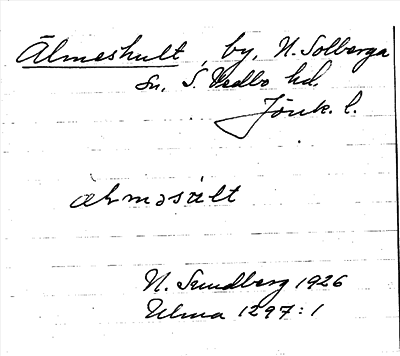 Älmeshult, by, N. Solberga
sn, S. Vedbo hd.
Jönk. l.
ælməsʉlt
N. Sundberg 1926
Ulma 1297:1